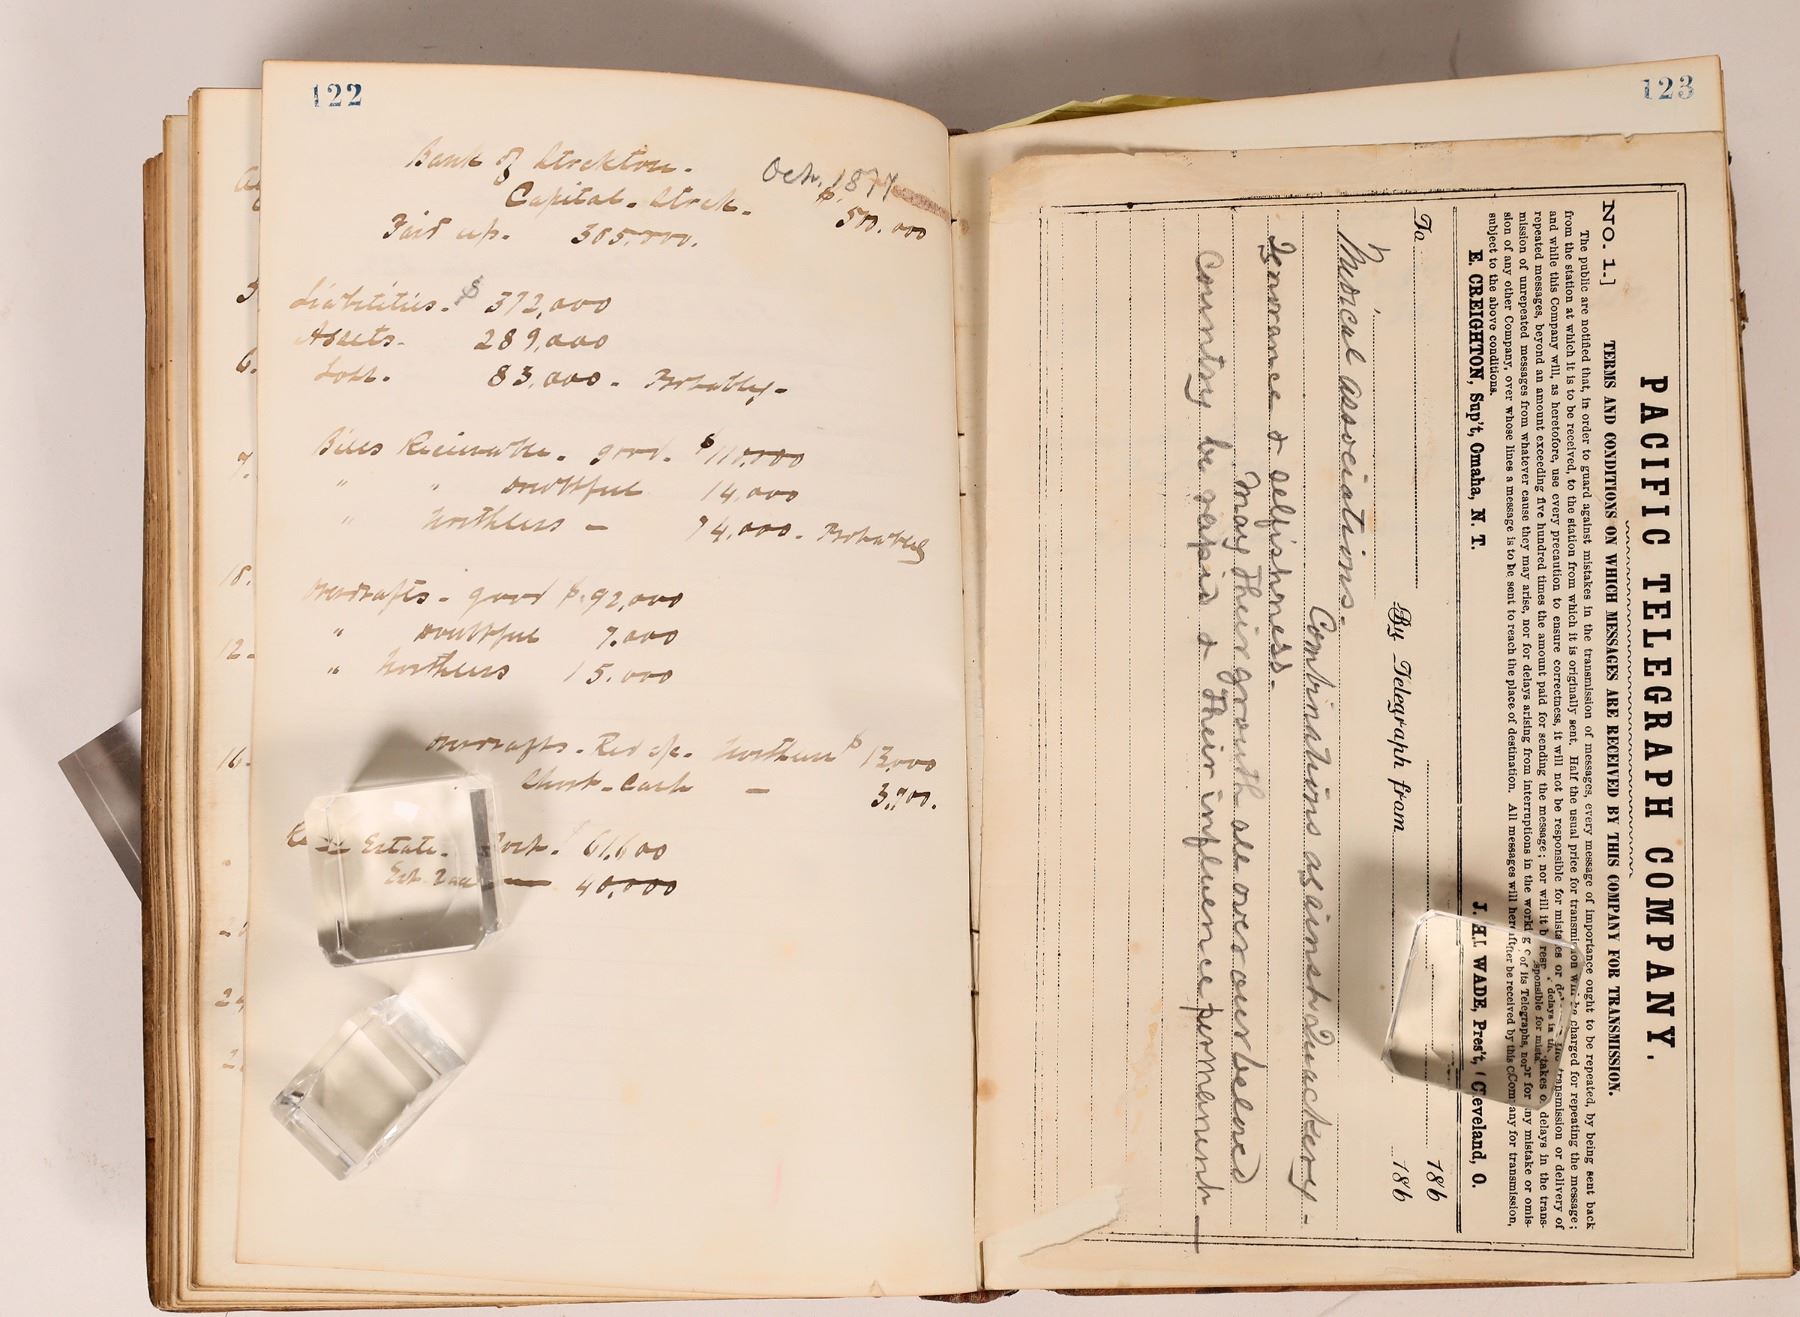 122
Bank of Stockton.
Oct. 1877
Capital. Stock. $500.000
Paid up. 305.000.
Liabilities. $ 372,000
Assets. 289,000
Loss. 83,000. Probably.
Bills Receivable. good. $
" " doubtful 14,000
" Worthless — 74,000. Probably
Overdrafts. good $.92,000
" doubtful 7.000
" Worthless 15.000
Overdrafts. Worthless $ 13,000
Short. Cash — 3,700.
Estate. 61,600
40,000
5.
6.
7.
12.
16.
123
PACIFIC TELEGRAPH COMPANY.
NO. 1.] TERMS AND CONDITIONS ON WHICH MESSAGES ARE RECEIVED BY THIS COMPANY FOR TRANSMISSION.
The public are notified that, in order to guard against mistakes in the transmission of messages, every message of importance ought to be repeated, by being sent back
from the station at which it is to be received, to the station from which it is originally sent. Half the usual price for transmission will be charged for repeating the message;
and while this Company will, as heretofore, use every precaution to ensure correctness, it will not be responsible for mistakes or delays in the transmission or delivery of
repeated messages, beyond an amount exceeding five hundred times the amount paid for sending the message; nor will it be responsible for mistakes or delays in the trans-
mission of unrepeated messages from whatever cause they may arise, nor for delays arising from interruptions in the working of its Telegraphs, nor for any mistake or omis-
sion of any other Company, over whose lines a message is to be sent to reach the place of destination. All messages will hereafter be received by this Company for transmission,
subject to the above conditions.
E. CREIGHTON, Sup't, Omaha, N. T. J. H. WADE, Pres't, Cleveland, O.
186
To
By Telegraph from 186
Medical associations.
Combinations against Quackery-
Ignorance & selfishness.
May their growth all over our beloved
Country be rapid & their influence permanent—